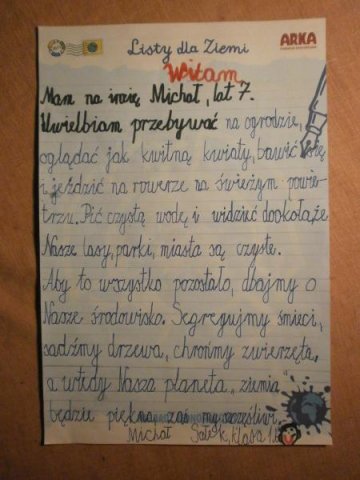 ARKA
Listy dla Ziemi
Witam
Mam na imię Michał, lat 7.
Uwielbiam przebywać na ogrodzie,
oglądać jak kwitną kwiaty, bawić się
i jeździć na rowerze na świeżym powie-
trzu. Pić czystą wodę i widzieć dookoła, że
Nasze lasy, parki, miasta są czyste.
Aby to wszystko pozostało, dbajmy o
Nasze środowisko. Segregujmy śmieci,
sadźmy drzewa, chrońmy zwierzęta,
a wtedy Nasza planeta „ziemia"
będzie piękna, zaś my szczęśliwi.
Michał klasa